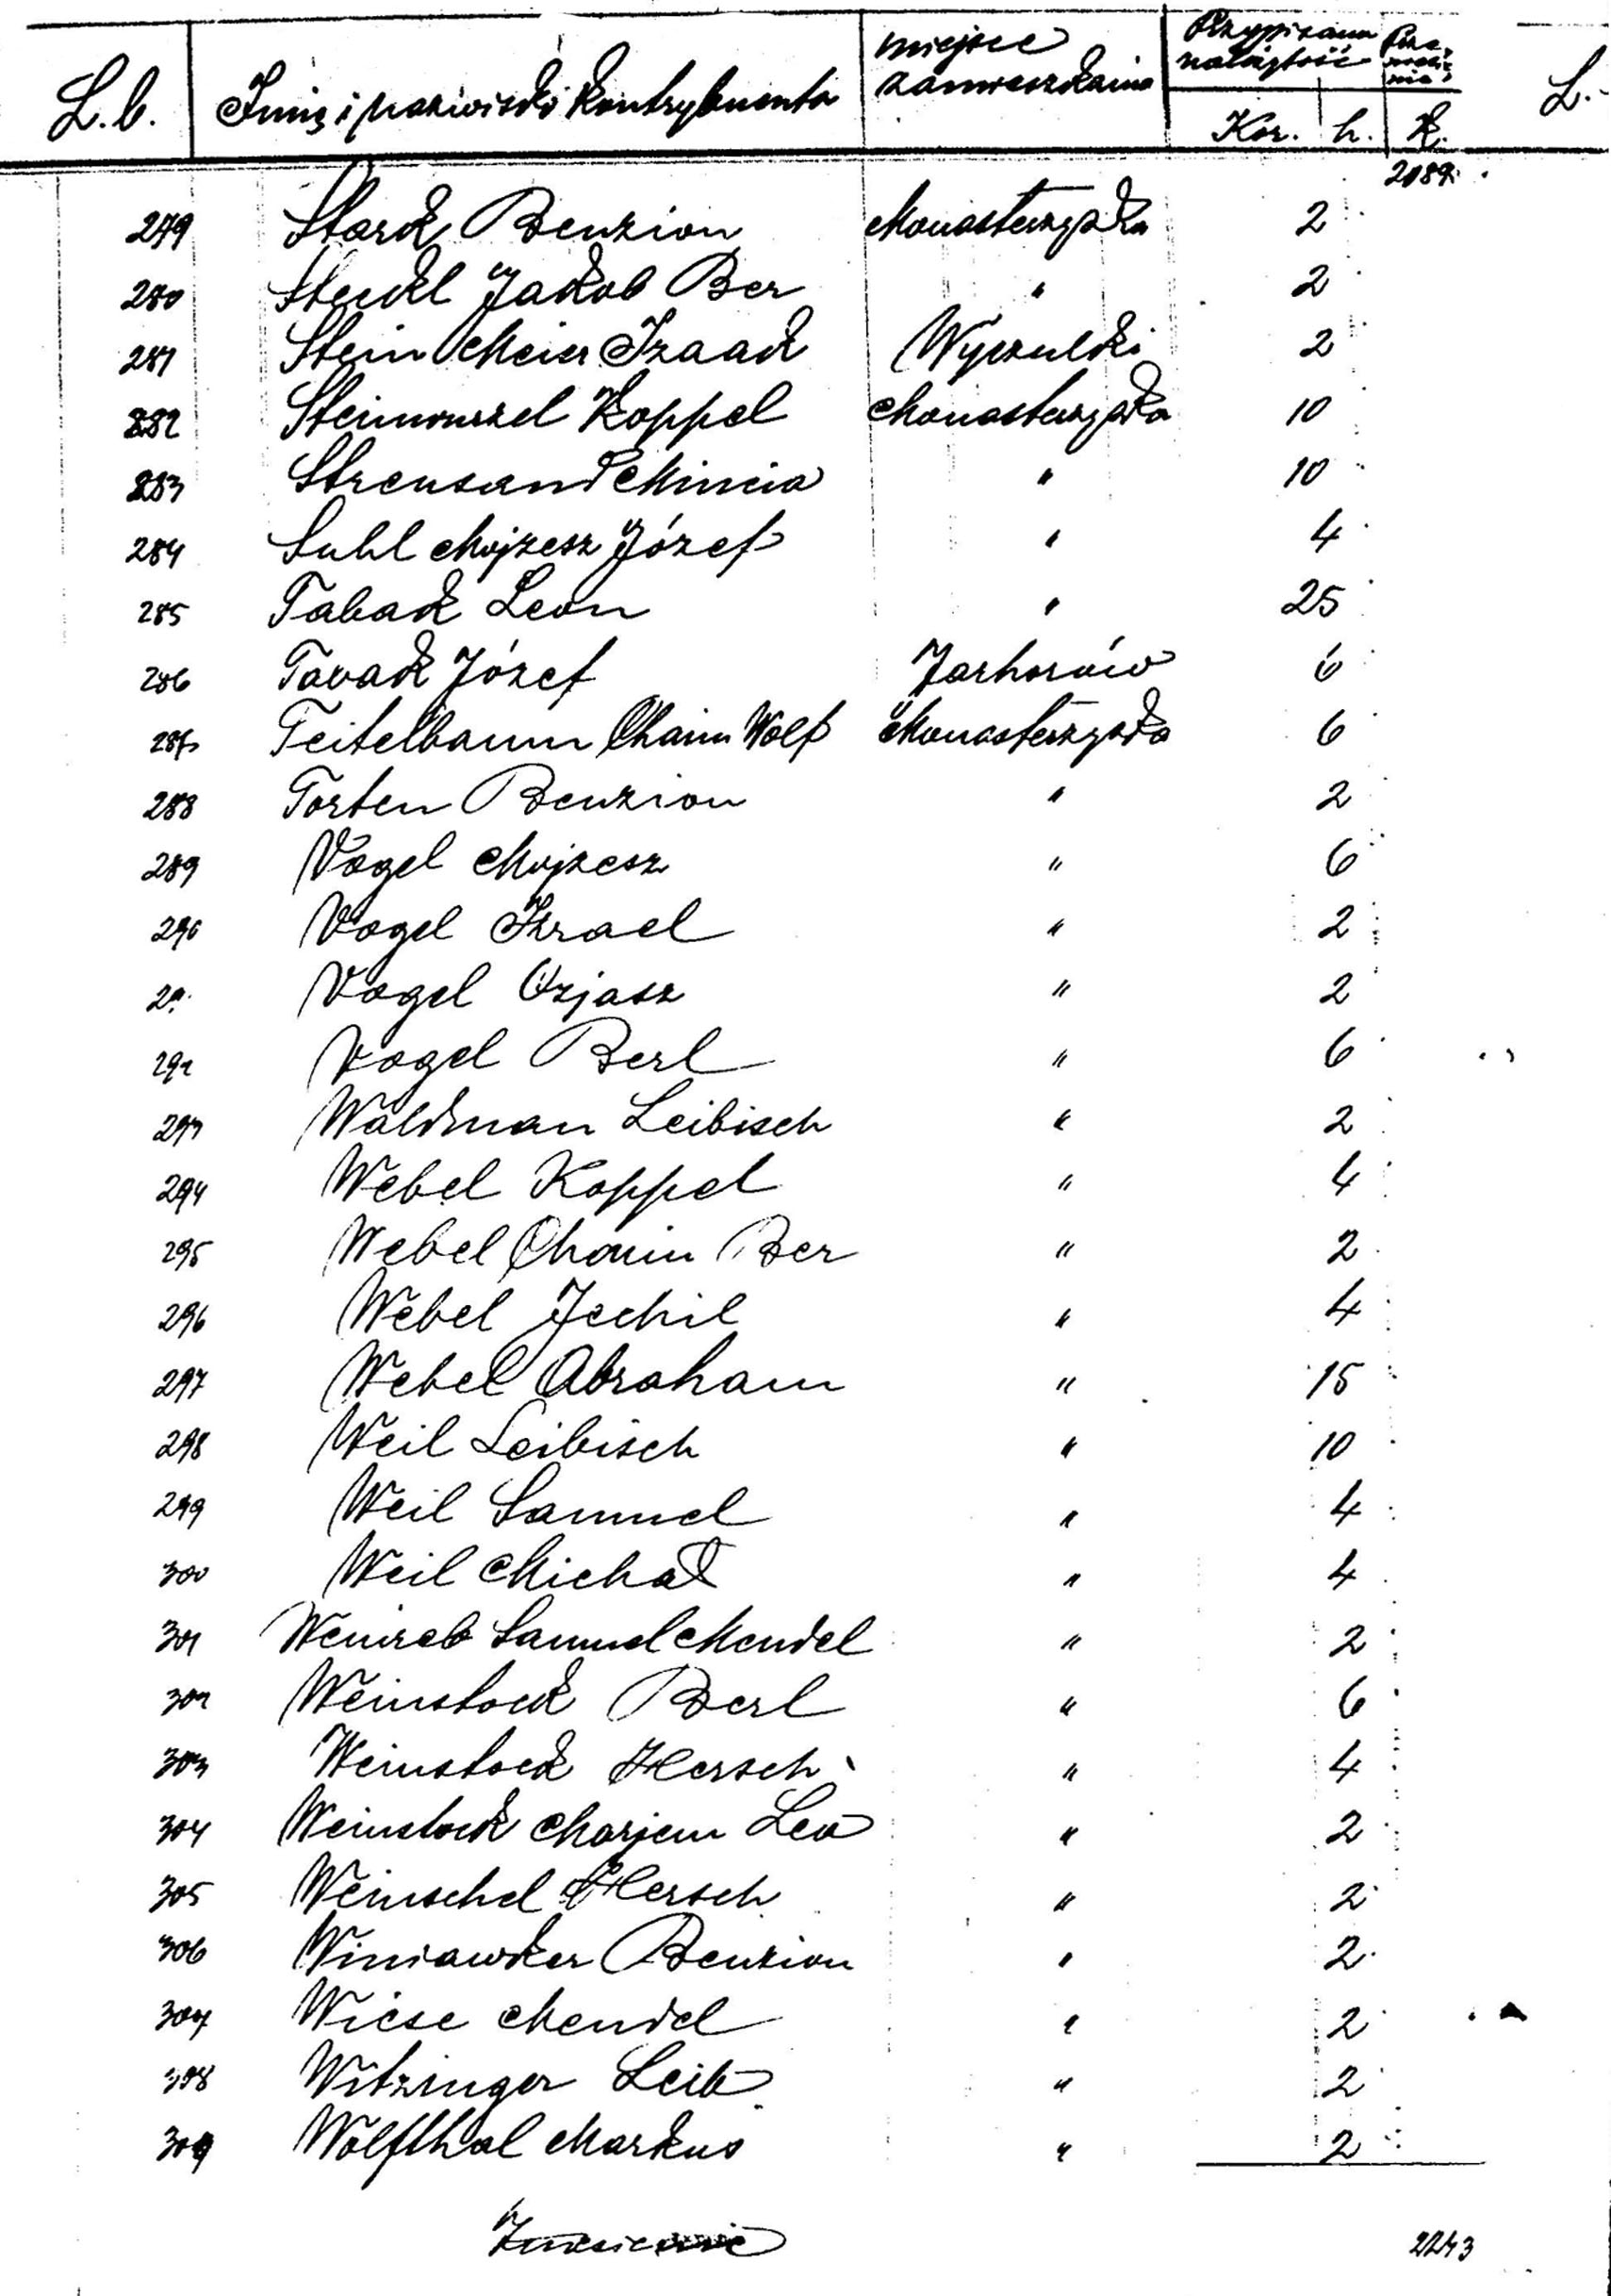 L.b. Imię i nazwisko kontrybuenta miejsce zamieszkania Przypisana należytość Kor. h. K. L.
2089
279 Stark Benzion Monasterzyska 2
280 Steckl Jakob Ber " 2
281 Stein Meier Izaak Wyczulki 2
282 Steinwurzel Koppel Monasterzyska 10
283 Streusand Mincia " 10
284 Suhl Mojzesz Józef " 4
285 Tabak Leon " 25
286 Tabak Józef Jarhorów 6
287 Teitelbaum Chaim Wolf Monasterzyska 6
288 Torten Benzion " 2
289 Vogel Mojzesz " 6
290 Vogel Israel " 2
29 Vogel Ozjasz " 2
292 Vogel Berl " 6
293 Waldman Leibisch " 2
294 Webel Koppel " 4
295 Webel Chaim Ber " 2
296 Webel Jechil " 4
297 Webel Abraham " 15
298 Weil Leibisch " 10
299 Weil Samuel " 4
300 Weil Michał " 4
301 Weinreb Samuel Mendel " 2
302 Weinstock Berl " 6
303 Weinstock Hersch " 4
304 Weinstock Marjem Lea " 2
305 Weinschel Hersch " 2
306 Winiawker Benzion " 2
307 Wiese Mendel " 2
308 Witzinger Leib " 2
309 Wolfthal Markus " 2
2243